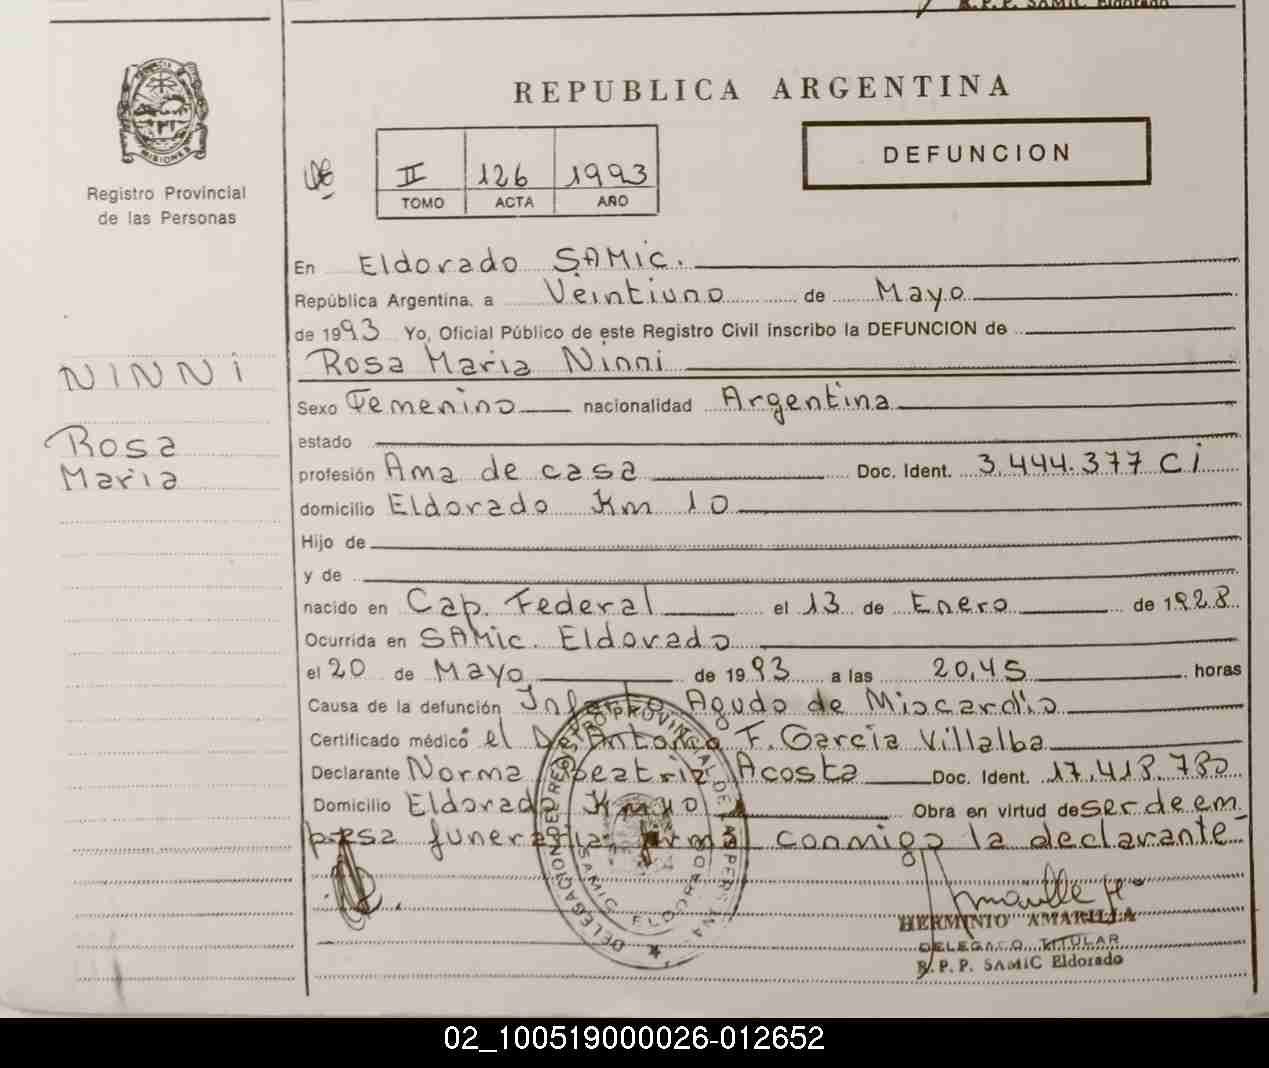 R.P.P. SAMIC Eldorado
PROVINCIA
MISIONES
Registro Provincial
de las Personas
REPUBLICA ARGENTINA
II 126 1993
TOMO ACTA AÑO
DEFUNCION
En Eldorado SAMic.
República Argentina, a Veintiuno de Mayo
de 1993 Yo, Oficial Público de este Registro Civil inscribo la DEFUNCION de
NINNi
Rosa Maria Ninni
Sexo Femenino nacionalidad Argentina
Rosa
estado
Maria
profesión Ama de casa Doc. Ident. 3.444.377 Ci
domicilio Eldorado Km 10
Hijo de
y de
nacido en Cap. Federal el 13 de Enero de 1928
Ocurrida en SAMic. Eldorado
el 20 de Mayo de 1993 a las 20,45 horas
Causa de la defunción Infarto Agudo de Miocardio
Certificado médico el Dr. Antonio F. García Villalba
Declarante Norma Beatriz Acosta Doc. Ident. 17.418.780
Domicilio Eldorado Km 10 Obra en virtud de ser de em
presa funeraria firma conmigo la declarante
DELEGACION DEL REGISTRO PROVINCIAL DE LAS PERSONAS
SAMIC ELDORADO
HERMINIO AMARILLA
DELEGADO TITULAR
R.P.P. SAMIC Eldorado
02_100519000026-012652